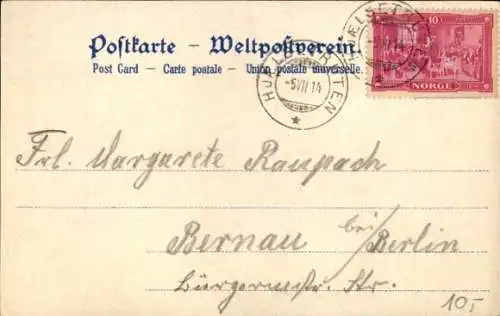 Postkarte – Weltpostverein.
Post Card – Carte postale – Union postale universelle.
HJÆLSET
10
NORGE
-5VII 14
Frl. Margarete Raupach
Bernau bei Berlin
Bürgermstr. Str.
10,-